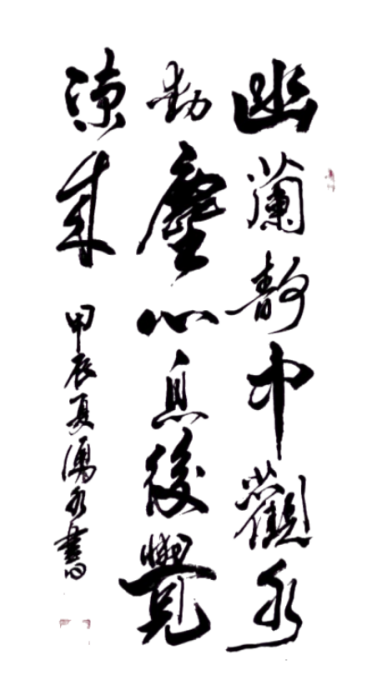 幽蘭靜中觀水
動塵心息後覺
涼來
甲辰夏 書